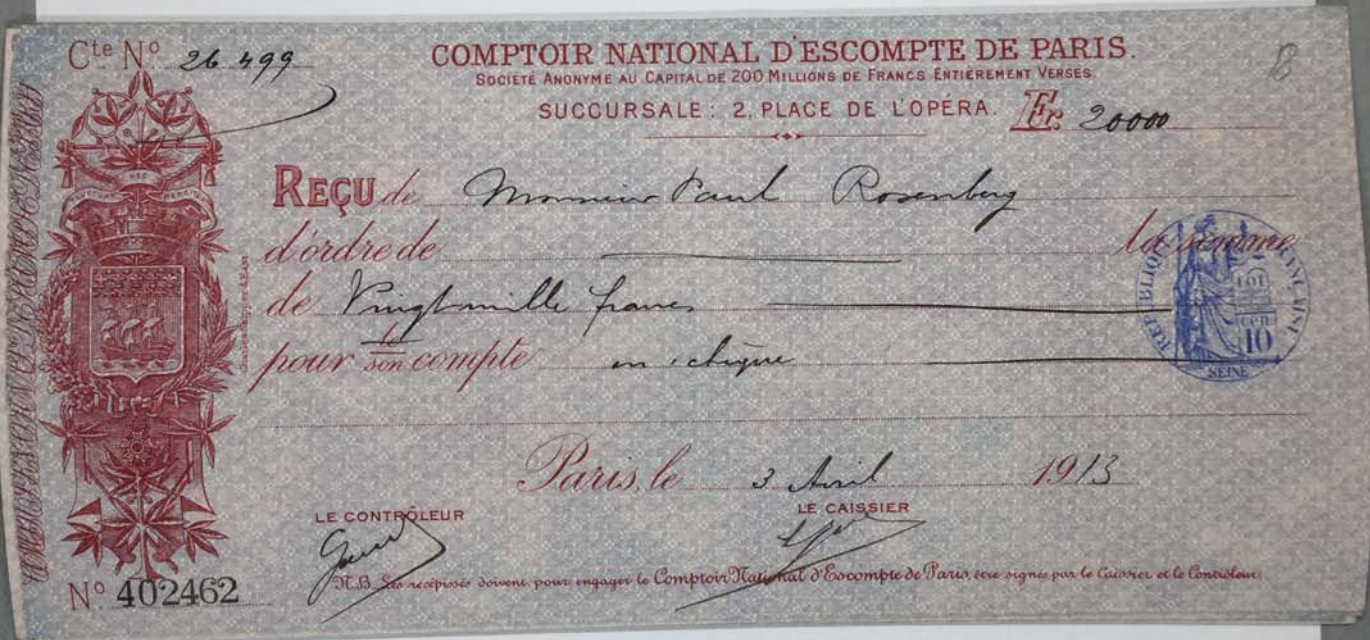 Cte No 26 499
COMPTOIR NATIONAL D'ESCOMPTE DE PARIS.
SOCIÉTÉ ANONYME AU CAPITAL DE 200 MILLIONS DE FRANCS ENTIÈREMENT VERSÉS.
SUCCURSALE: 2, PLACE DE L'OPÉRA. Fr. 20000
REÇU de Monsieur Paul Rosenberg
d'ordre de la somme
de Vingt mille francs
pour son compte en chèque
RÉPUBLIQUE FRANÇAISE
10
SEINE
Paris, le 3 Avril 1913
LE CONTRÔLEUR LE CAISSIER
N.B. Les récépissés doivent, pour engager le Comptoir National d'Escompte de Paris, être signés par le Caissier et le Contrôleur.
No 402462